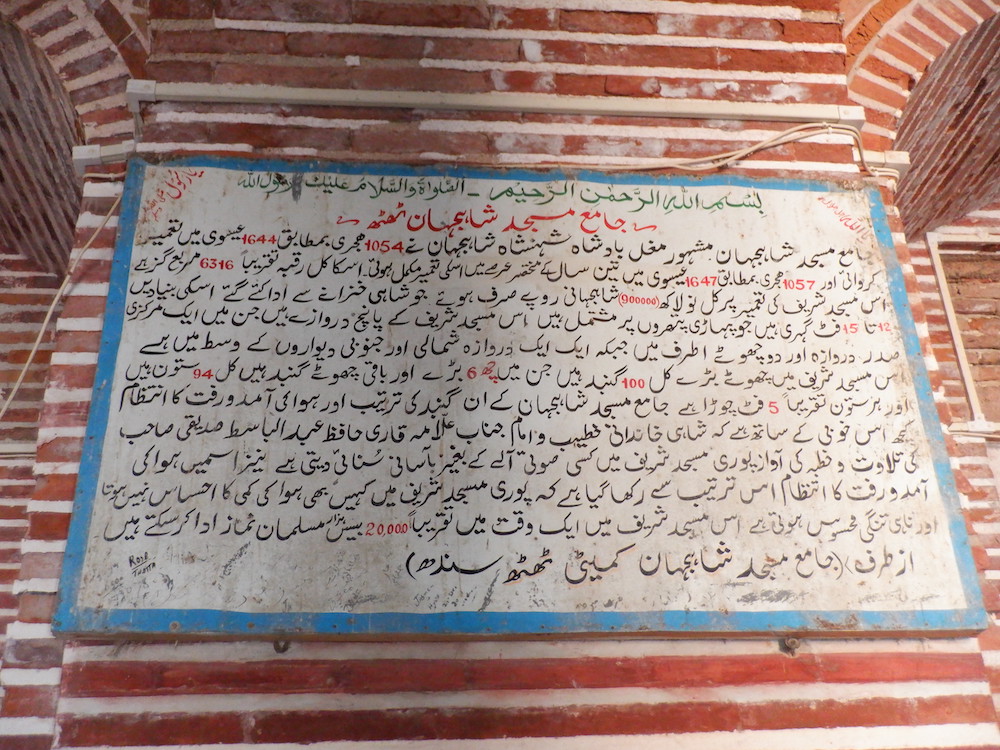 بسم اللہ الرحمٰن الرحیم - الصلوٰۃ والسلام علیک یارسول اللہ
جامع مسجد شاہجہان ٹھٹھہ
جامع مسجد شاہجہان مشہور مغل بادشاہ شہنشاہ شاہجہان نے 1054 ہجری بمطابق 1644 عیسوی میں تعمیر
کروائی اور 1057 ہجری بمطابق 1647 عیسوی میں تین سال کے مختصر عرصے میں اسکی تعمیر مکمل ہوئی اسکا کل رقبہ تقریباً 6316 مربع گز ہے
اس مسجد شریف کی تعمیر پر کل نو لاکھ (900000) شاہجہانی روپے صرف ہوئے جو شاہی خزانے سے ادا کئے گئے اسکی بنیادیں
12 تا 15 فٹ گہری ہیں جو پہاڑی پتھروں پر مشتمل ہیں اس مسجد شریف کے پانچ دروازے ہیں جن میں ایک مرکزی
صدر دروازہ اور دو چھوٹے اطرف میں جبکہ ایک ایک دروازہ شمالی اور جنوبی دیواروں کے وسط میں ہے
اس مسجد شریف میں چھوٹے بڑے کل 100 گنبد ہیں جن میں چھ 6 بڑے اور باقی چھوٹے گنبد ہیں کل 94 ستون ہیں
اور ہر ستون تقریباً 5 فٹ چوڑا ہے جامع مسجد شاہجہان کے ان گنبد کی ترتیب اور ہوا کی آمد ورفت کا انتظام
کچھ اس خوبی کے ساتھ ہے کہ شاہی خاندانی خطیب و امام جناب علامہ قاری حافظ عبد الباسط صدیقی صاحب
کی تلاوت و خطبہ کی آواز پوری مسجد شریف میں کسی صوتی آلے کے بغیر باآسانی سُنائی دیتی ہے نیز اسمیں ہوا کی
آمد ورفت کا انتظام اس ترتیب سے رکھا گیا ہے کہ پوری مسجد شریف میں کہیں بھی ہوا کی کمی کا احساس نہیں ہوتا
اور نا ہی تنگی محسوس ہوتی ہے اس مسجد شریف میں ایک وقت میں تقریباً 20,000 بیس ہزار مسلمان نماز ادا کر سکتے ہیں
از طرف (جامع مسجد شاہجہان کمیٹی ٹھٹھہ سندھ)